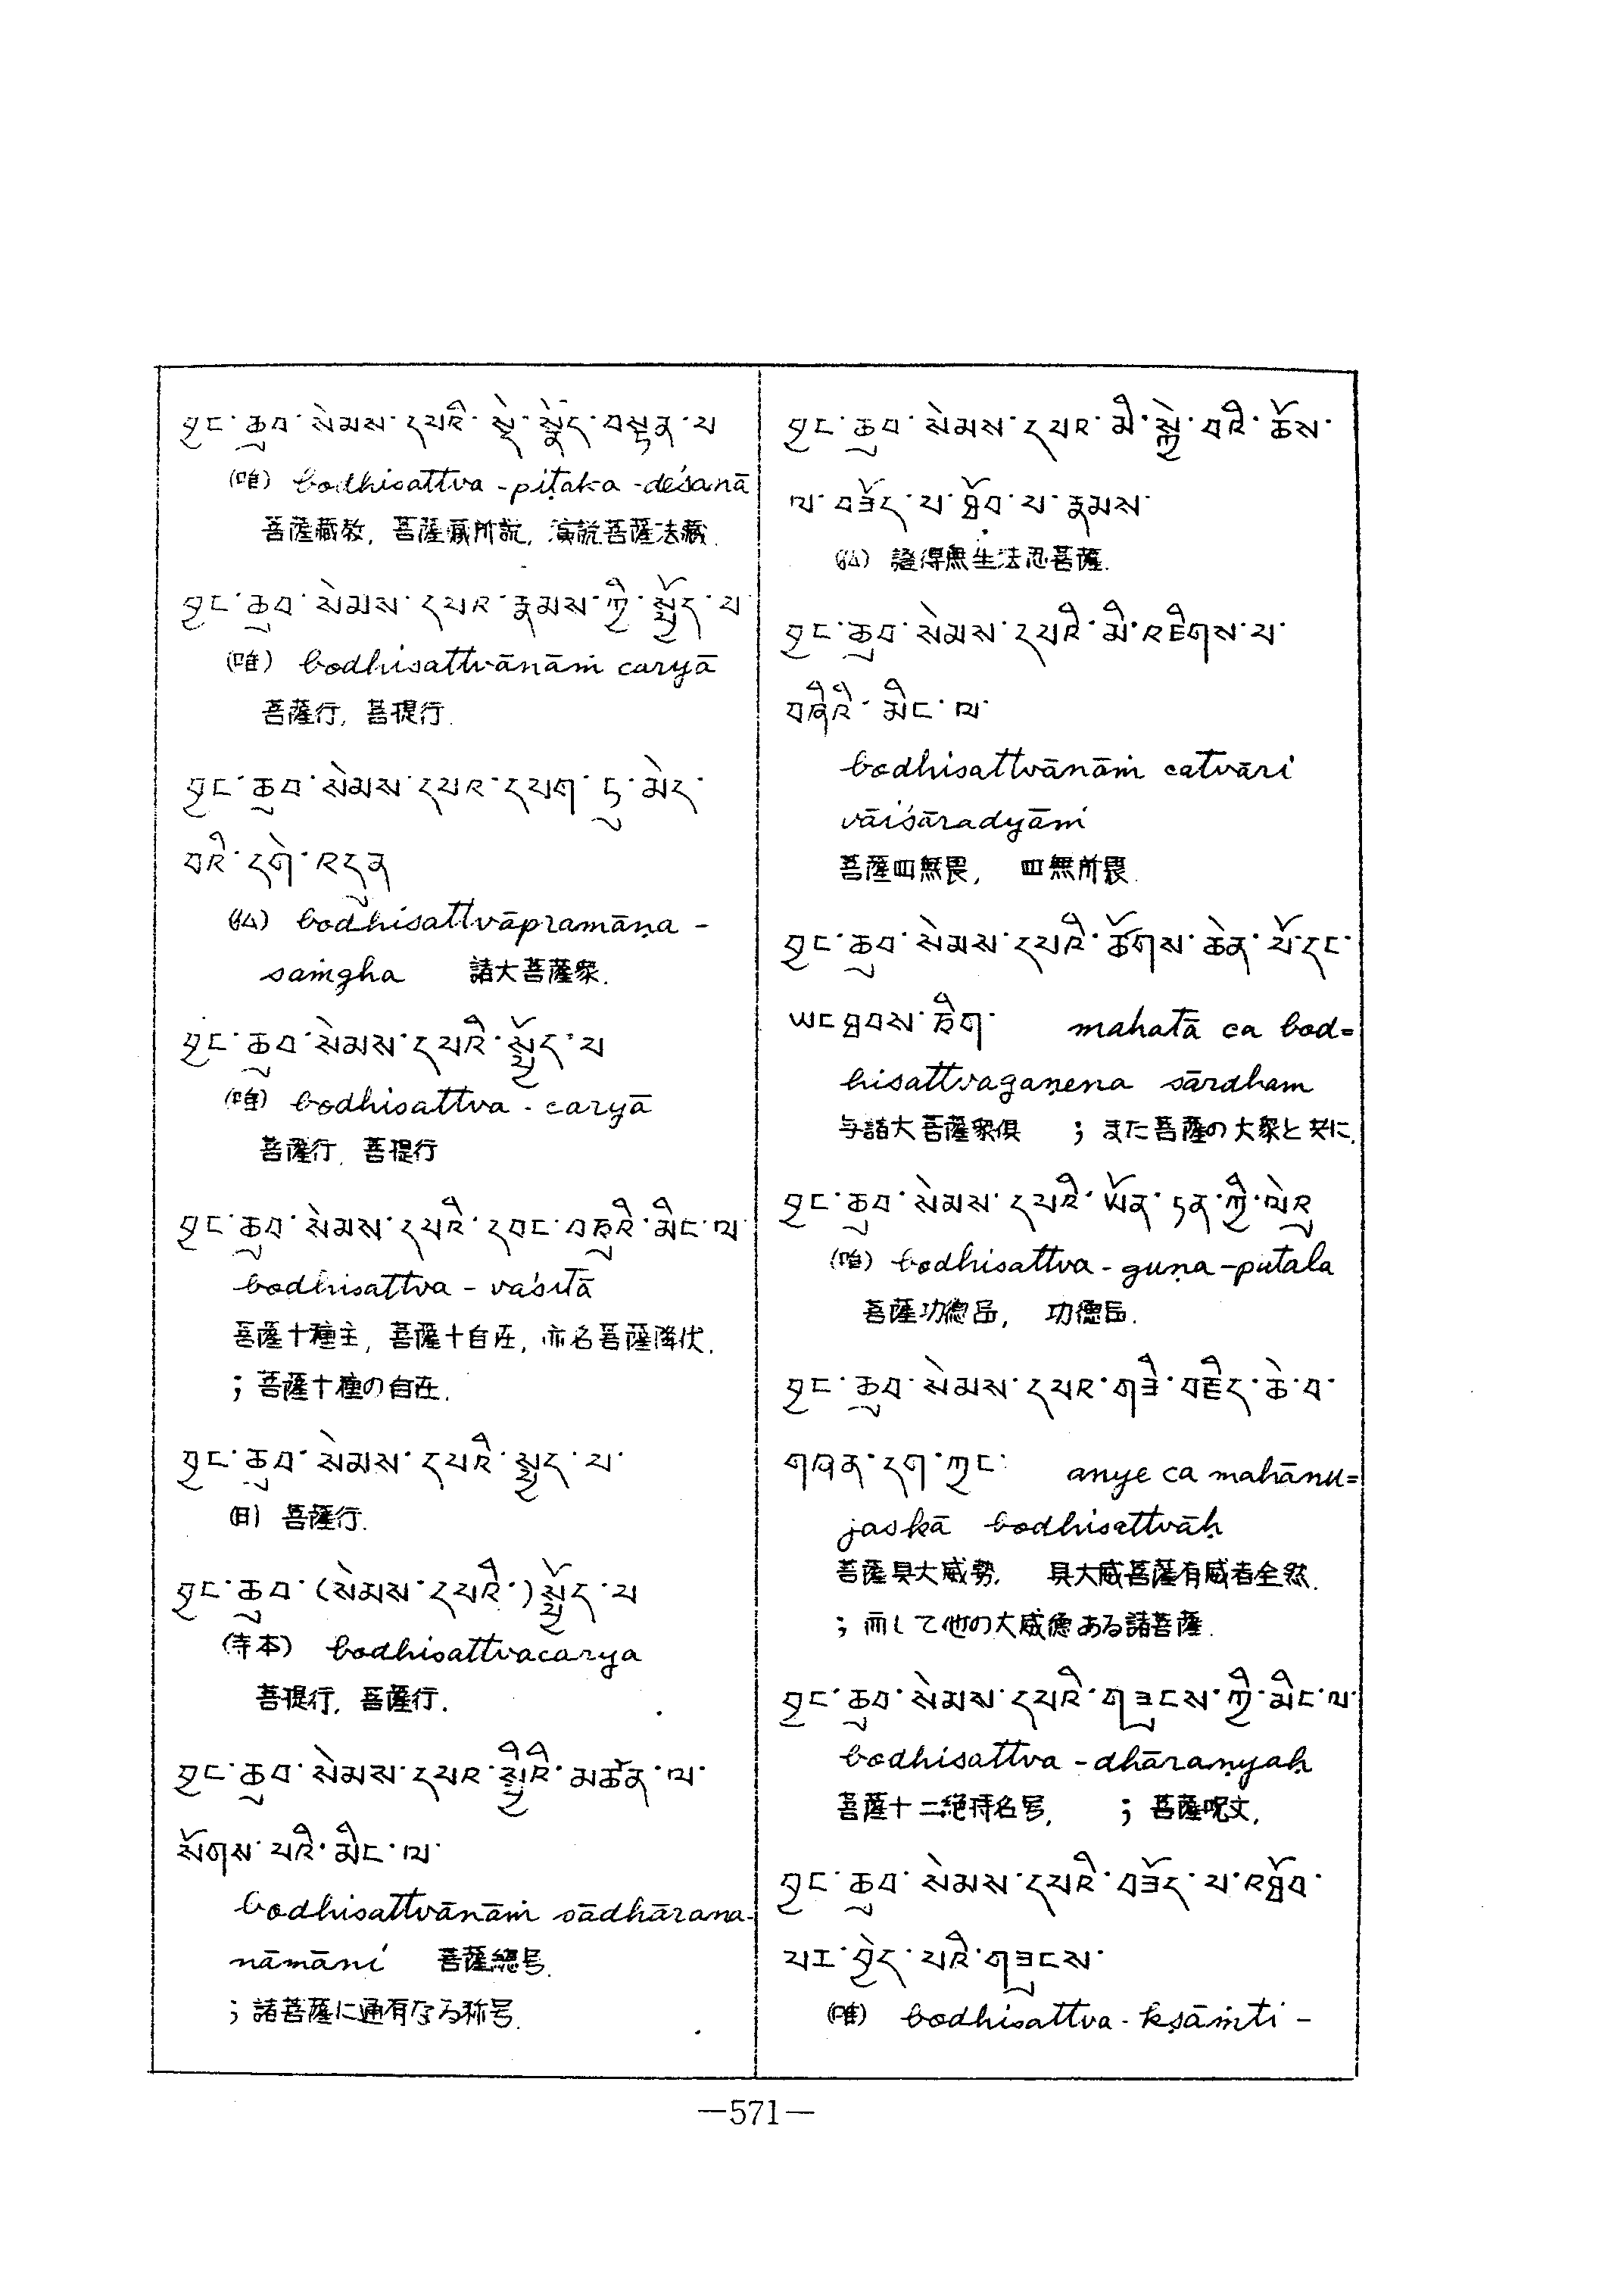 བྱང་ཆུབ་སེམས་དཔའི་སྡེ་སྣོད་བསྟན་པ
(唯) bodhisattva-piṭaka-deśanā
菩薩藏教, 菩薩藏所説, 演説菩薩法藏.
བྱང་ཆུབ་སེམས་དཔའ་རྣམས་ཀྱི་སྤྱོད་པ
(唯) bodhisattvānāṁ caryā
菩薩行, 菩提行.
བྱང་ཆུབ་སེམས་དཔའ་དཔག་ཏུ་མེད་
པའི་དགེ་འདུན
(仏) bodhisattvāpramāṇa-
saṁgha 諸大菩薩衆.
བྱང་ཆུབ་སེམས་དཔའི་སྤྱོད་པ
(唯) bodhisattva-caryā
菩薩行, 菩提行
བྱང་ཆུབ་སེམས་དཔའི་དབང་བཅུའི་མིང་ལ་
bodhisattva-vaśitā
菩薩十種主, 菩薩十自在, 亦名菩薩降伏.
; 菩薩十種の自在.
བྱང་ཆུབ་སེམས་དཔའི་སྤྱད་པ་
(日) 菩薩行.
བྱང་ཆུབ་(སེམས་དཔའི་)སྤྱོད་པ
(寺本) bodhisattvacarya
菩提行, 菩薩行.
བྱང་ཆུབ་སེམས་དཔའ་སྤྱིའི་མཚན་ལ་
སོགས་པའི་མིང་ལ་
bodhisattvānāṁ sādhārana-
nāmāni 菩薩總号.
; 諸菩薩に通有なる称号.
བྱང་ཆུབ་སེམས་དཔའ་མི་སྐྱེ་བའི་ཆོས་
ལ་བཟོད་པ་ཐོབ་པ་རྣམས་
(仏) 證得無生法忍菩薩.
བྱང་ཆུབ་སེམས་དཔའི་མི་འཇིགས་པ་
བཞིའི་མིང་ལ་
bodhisattvānāṁ catvāri
vāiśāradyāṁ
菩薩四無畏, 四無所畏.
བྱང་ཆུབ་སེམས་དཔའི་ཚོགས་ཆེན་པོ་དང་
ཡང་ཐབས་ཅིག་ mahatā ca bod=
hisattvagaṇena sārdham
与諸大菩薩衆俱 ; また菩薩の大衆と共に.
བྱང་ཆུབ་སེམས་དཔའི་ཡོན་ཏན་ཀྱི་ལེའུ
(唯) bodhisattva-guṇa-putala
菩薩功德品, 功德品.
བྱང་ཆུབ་སེམས་དཔའ་གཟི་བརྗིད་ཆེ་བ་
གཞན་དག་ཀྱང་ anye ca mahānu=
jaskā bodhisattvāḥ
菩薩具大威勢, 具大威菩薩有威者全然.
; 而して他の大威德ある諸菩薩.
བྱང་ཆུབ་སེམས་དཔའི་གཟུངས་ཀྱི་མིང་ལ་
bodhisattva-dhāraṇyaḥ
菩薩十二總持名号, ; 菩薩呪文,
བྱང་ཆུབ་སེམས་དཔའི་བཟོད་པ་འཐོབ་
པར་བྱེད་པའི་གཟུངས་
(唯) bodhisattva-kṣāṁti-
—571—